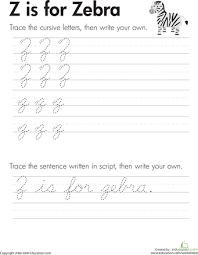 Z is for Zebra
Trace the cursive letters, then write your own.
Z Z Z
Z Z Z
z z z
z z z
Trace the sentence written in script, then write your own.
Z is for zebra.
education.com